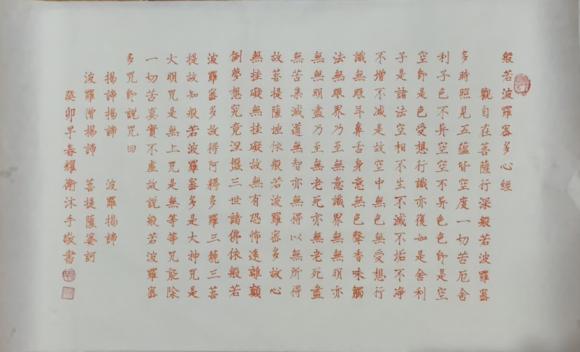 般若波羅蜜多心經
觀自在菩薩行深般若波羅蜜
多時照見五蘊皆空度一切苦厄舍
利子色不異空空不異色色即是空
空即是色受想行識亦復如是舍利
子是諸法空相不生不滅不垢不淨
不增不減是故空中無色無受想行
識無眼耳鼻舌身意無色聲香味觸
法無眼界乃至無意識界無無明亦
無無明盡乃至無老死亦無老死盡
無苦集滅道無智亦無得以無所得
故菩提薩埵依般若波羅蜜多故心
無挂礙無挂礙故無有恐怖遠離顛
倒夢想究竟涅槃三世諸佛依般若
波羅蜜多故得阿耨多羅三藐三菩
提故知般若波羅蜜多是大神咒是
大明咒是無上咒是無等等咒能除
一切苦真實不虛故說般若波羅蜜
多咒即說咒曰
揭諦揭諦 波羅揭諦
波羅僧揭諦 菩提薩婆訶
癸卯早春耀衡沐手敬書